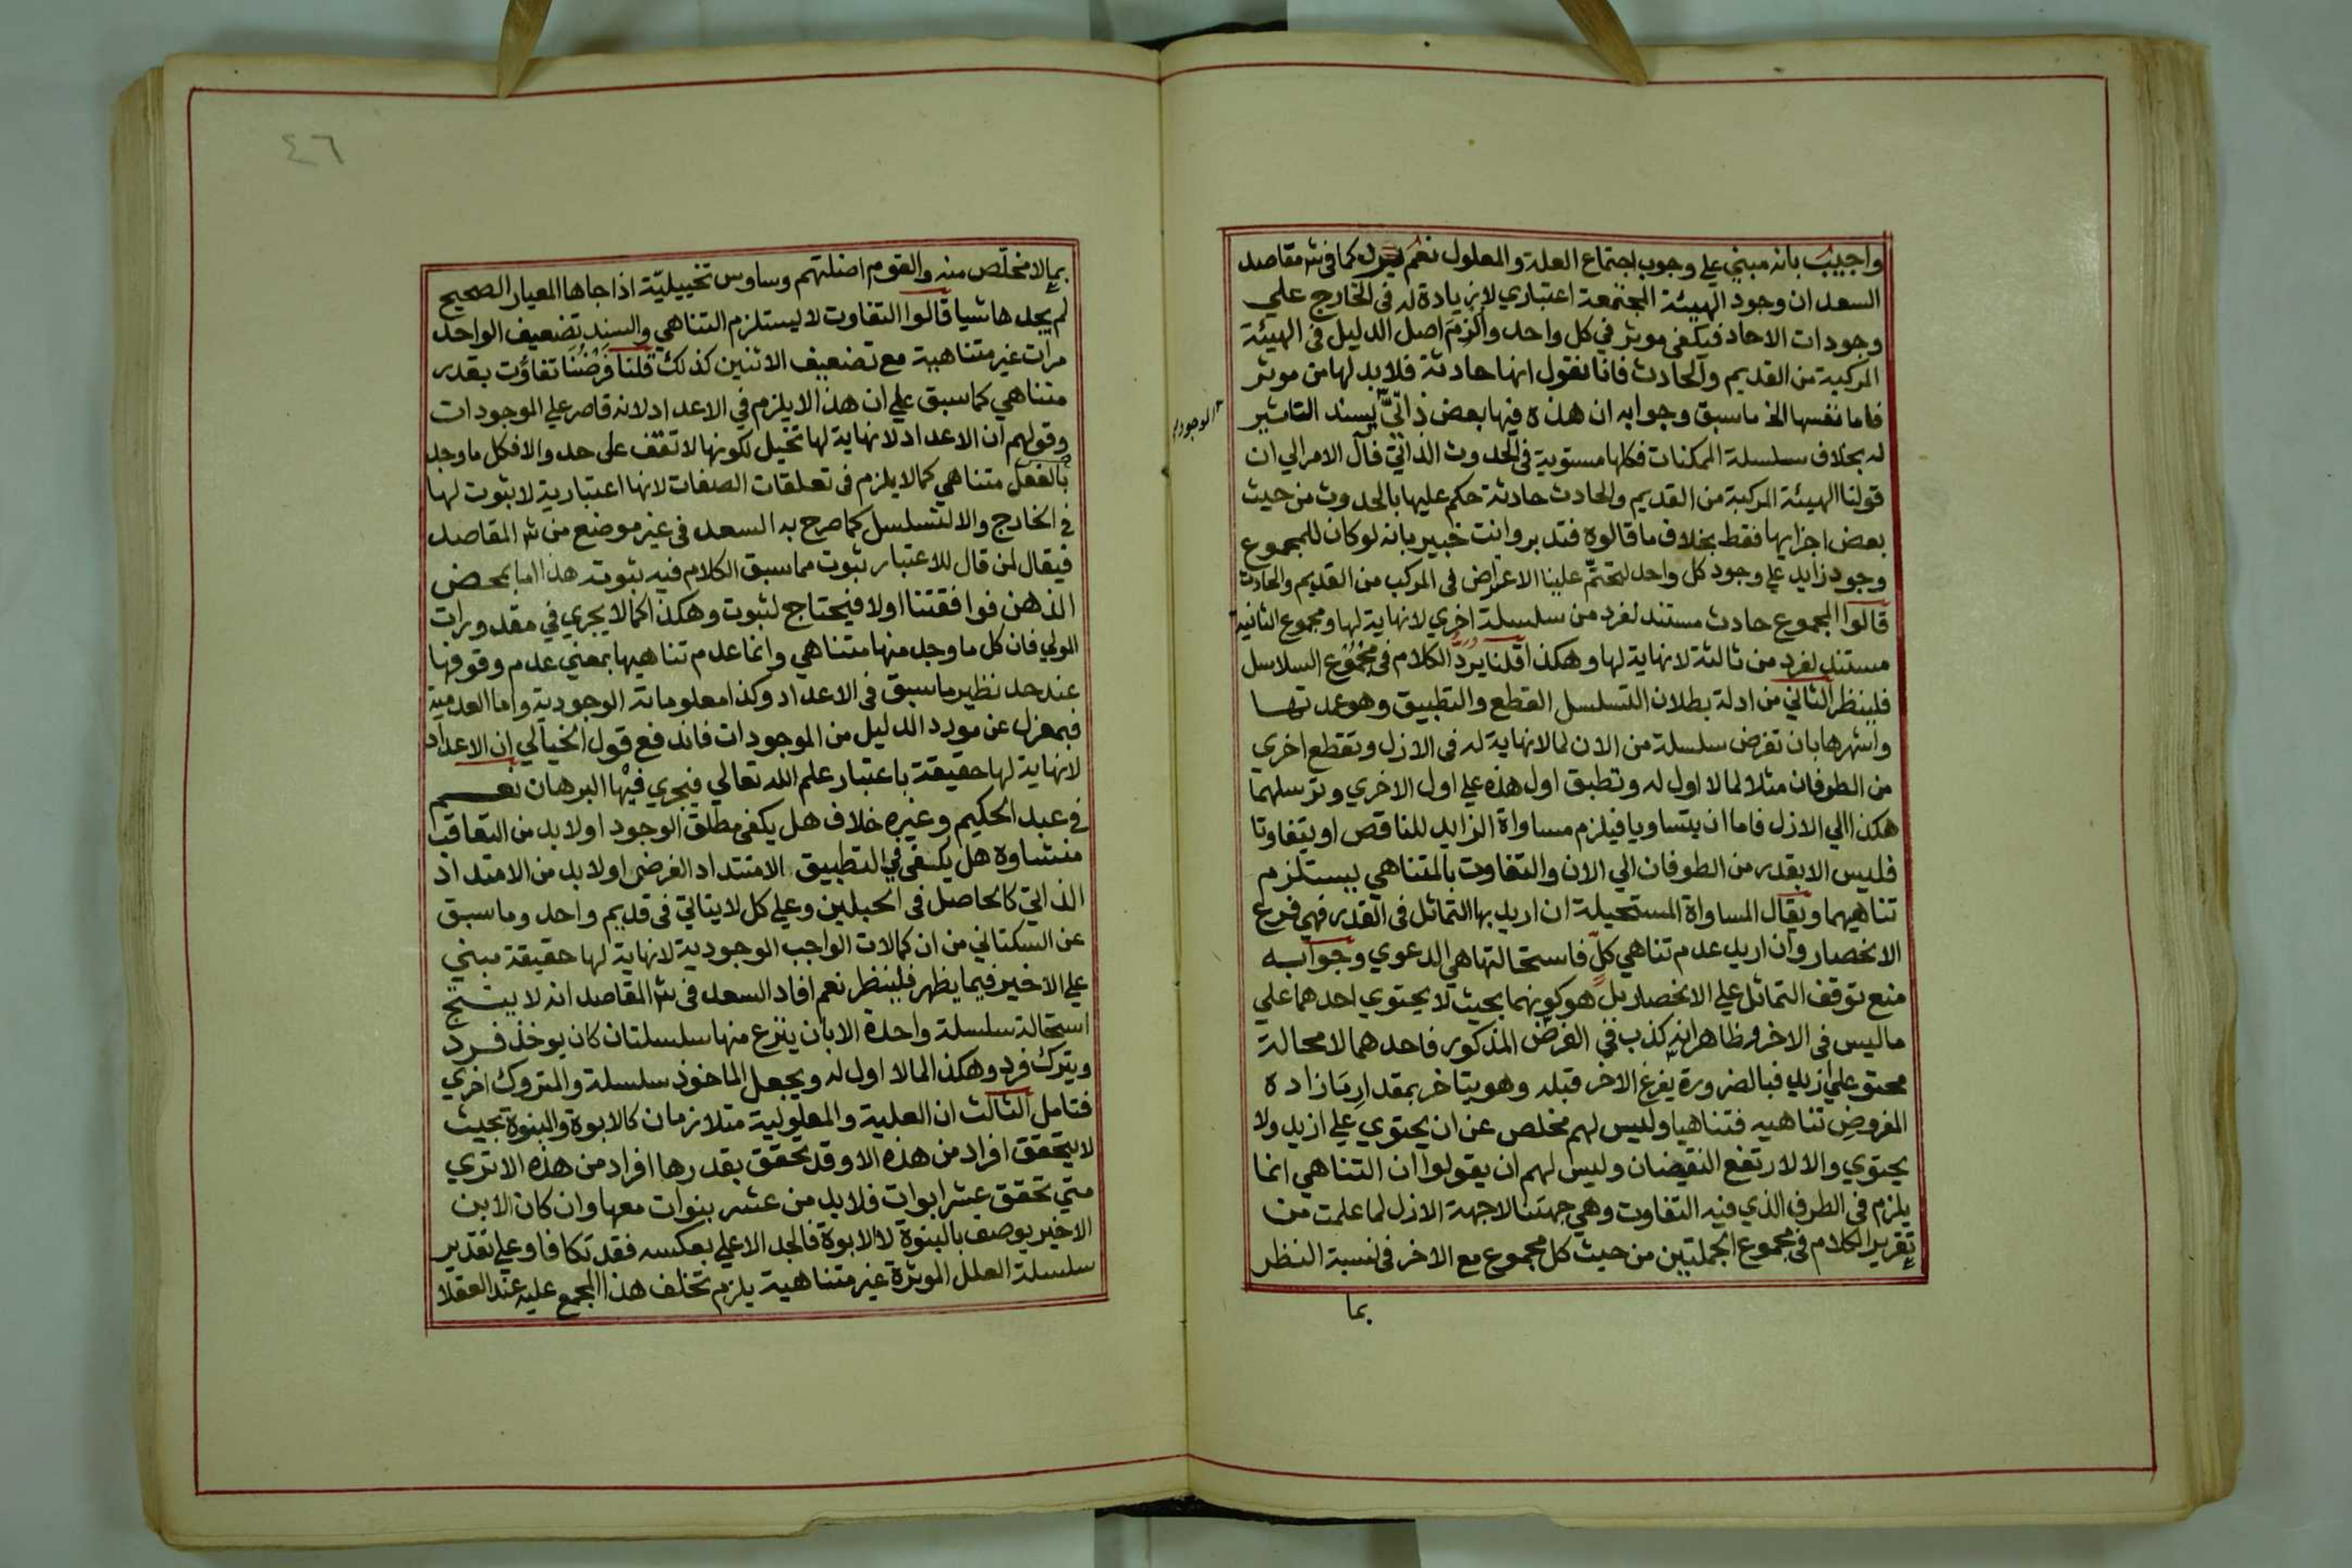 واجيب بانه مبني علي وجوب اجتماع العلة والمعلول نعم كما في شر مقاصد
السعد ان وجود الهيئة المجتمعة اعتباري لا زيادة له في الخارج علي
وجودات الاحاد فيكفي موثر في كل واحد والزم اصل الدليل في الهيئة
المركبة من القديم والحادث فانا نقول انها حادثة فلا بد لها من موثر
فاما نفسها الخ ما سبق وجوابه ان هذه فيها بعض ذاتي يسند التاثير
له بخلاف سلسلة الممكنات فكلها مستوية في الحدوث الذاتي فآل الامر الي ان
قولنا الهيئة المركبة من القديم والحادث حادثة حكم عليها بالحدوث من حيث
بعض اجزايها فقط بخلاف ما قالوه فتدبر وانت خبير بانه لو كان للمجموع
وجود زايد علي وجود كل واحد لتحتم علينا الاعراض في المركب من القديم والحادث
قالوا المجموع حادث مستند لفرد من سلسلة اخري لا نهاية لها ومجموع الثانية
مستند لفرد من ثالثة لا نهاية لها وهكذا قلنا يرد الكلام في مجموع السلاسل
فلينظر الثاني من ادلة بطلان التسلسل القطع والتطبيق وهو عمدتها
واشهرها بان تفرض سلسلة من الان لما لا نهاية له في الازل وتقطع اخري
من الطوفان مثلا لما لا اول له وتطبق اول هذه علي اول الاخري وترسلهما
هكذا الي الازل فاما ان يتساويا فيلزم مساواة الزايد للناقص او يتفاوتا
فليس الا بقدر من الطوفان الي الان والتفاوت بالمتناهي يستلزم
تناهيهما ويقال المساواة المستحيلة ان اريد بها التماثل في القدر فهي فرع
الانحصار وان اريد عدم تناهي كل فاستحالتها هي الدعوي وجوابه
منع توقف التماثل علي الانحصار بل هو كونهما بحيث لا يحتوي احدهما علي
ما ليس في الاخر وظاهر انه كذب في الفرض المذكور فاحدهما لا محالة
محتو علي ازيد فبالضرورة يفرغ الاخر قبله وهو يتاخر بمقدار ما زاده
المفروض تناهيه فتناهيا وليس لهم مخلص عن ان يحتوي علي ازيد ولا
يحتوي والا لارتفع النقيضان وليس لهم ان يقولوا ان التناهي انما
يلزم في الطرف الذي فيه التفاوت وهي جهتنا لا جهة الازل لما علمت من
تقرير الكلام في مجموع الجملتين من حيث كل مجموع مع الاخر في نسبة النظر
بما
٤٦
بما لا مخلص منه والقوم اضلتهم وساوس تخييلية اذا جاها المعيار الصحيح
لم يجد ها شيا قالوا التفاوت لا يستلزم التناهي والسند تضعيف الواحد
مرات غير متناهية مع تضعيف الاثنين كذلك قلنا فرضنا تفاوت بقدر
متناهي كما سبق علي ان هذا لا يلزم في الاعداد لانه قاصر علي الموجودات
وقولهم ان الاعداد لا نهاية لها تخيل لكونها لا تقف علي حد والا فكل ما وجد
بالفعل متناهي كما لا يلزم في تعلقات الصفات لانها اعتبارية لا ثبوت لها
في الخارج والا لتسلسل كما صرح به السعد في غير موضع من شر المقاصد
فيقال لمن قال للاعتبار ثبوت مما سبق الكلام فيه ثبوته هذا اما بمحض
الذهن فوافقتنا اولا فيحتاج لثبوت وهكذا كما لا يجري في مقدورات
المولي فان كل ما وجد منها متناهي وانما عدم تناهيها بمعني عدم وقوفها
عند حد نظير ما سبق في الاعداد وكذا معلوماته الوجودية واما العدمية
فبمعزل عن مورد الدليل من الموجودات فاندفع قول الخيالي ان الاعداد
لا نهاية لها حقيقة باعتبار علم الله تعالي فيجري فيها البرهان نعم
في عبد الحكيم وغيره خلاف هل يكفي مطلق الوجود او لا بد من التعاقب
منشاوه هل يكفي في التطبيق الامتداد الفرضي او لا بد من الامتداد
الذاتي كالحاصل في الحبلين وعلي كل لا يتاتي في قديم واحد وما سبق
عن السكتاني من ان كمالات الواجب الوجودية لا نهاية لها حقيقة مبني
علي الاخير فيما يظهر فلينظر نعم افاد السعد في شر المقاصد انه لا ينتج
استحالة سلسلة واحدة الا بان ينزع منها سلسلتان كان يوخذ فرد
ويترك فرد وهكذا لما لا اول له ويجعل الماخوذ سلسلة والمتروك اخري
فتامل الثالث ان العلية والمعلولية متلازمان كالابوة والبنوة بحيث
لا يتحقق افراد من هذه الا وقد تحقق بقدرها افراد من هذه الا تري
متي تحقق عشر ابوات فلا بد من عشر بنوات معها وان كان الابن
الاخير يوصف بالبنوة لا الابوة فالجد الاعلي بعكسه فقد تكافا وعلي تقدير
سلسلة العلل الموثرة غير متناهية يلزم تخلف هذا المجمع عليه عند العقلا